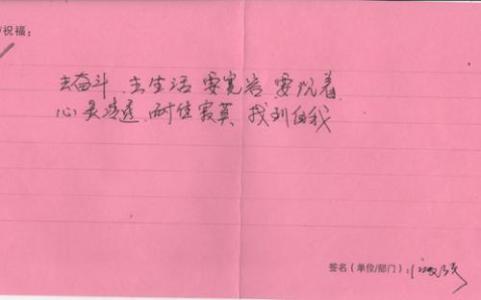 /祝福：
去奋斗 去生活 要宽容 要沉着
心灵 耐住寂寞 找到自我
签名（单位/部门）